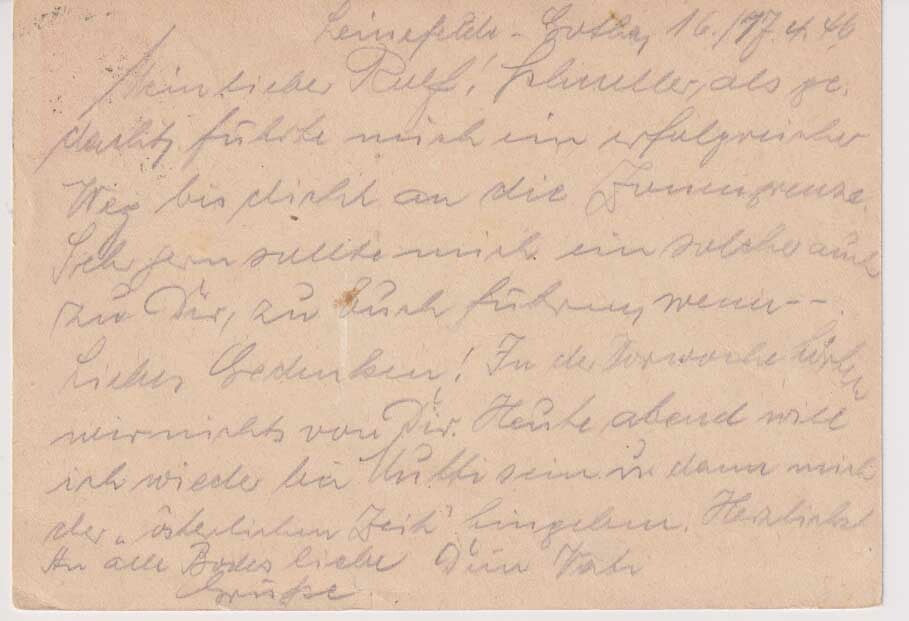 Leinefelde - Gotha, 16./17.4.46
Mein lieber Rolf! Schneller, als ge-
dacht, führte mich ein erfolgreicher
Weg bis dicht an die Zonengrenze.
Sehr gern sollte mich ein solcher auch
zu Dir, zu Euch führen, wenn--
Liebes Gedenken! In der Vorwoche hörten
wir nichts von Dir. Heute abend will
ich wieder bei Mutti sein u. dann mich
der "österlichen Zeit" hingeben. Herzlichst
An alle Bodes liebe Dein Vater
Grüße